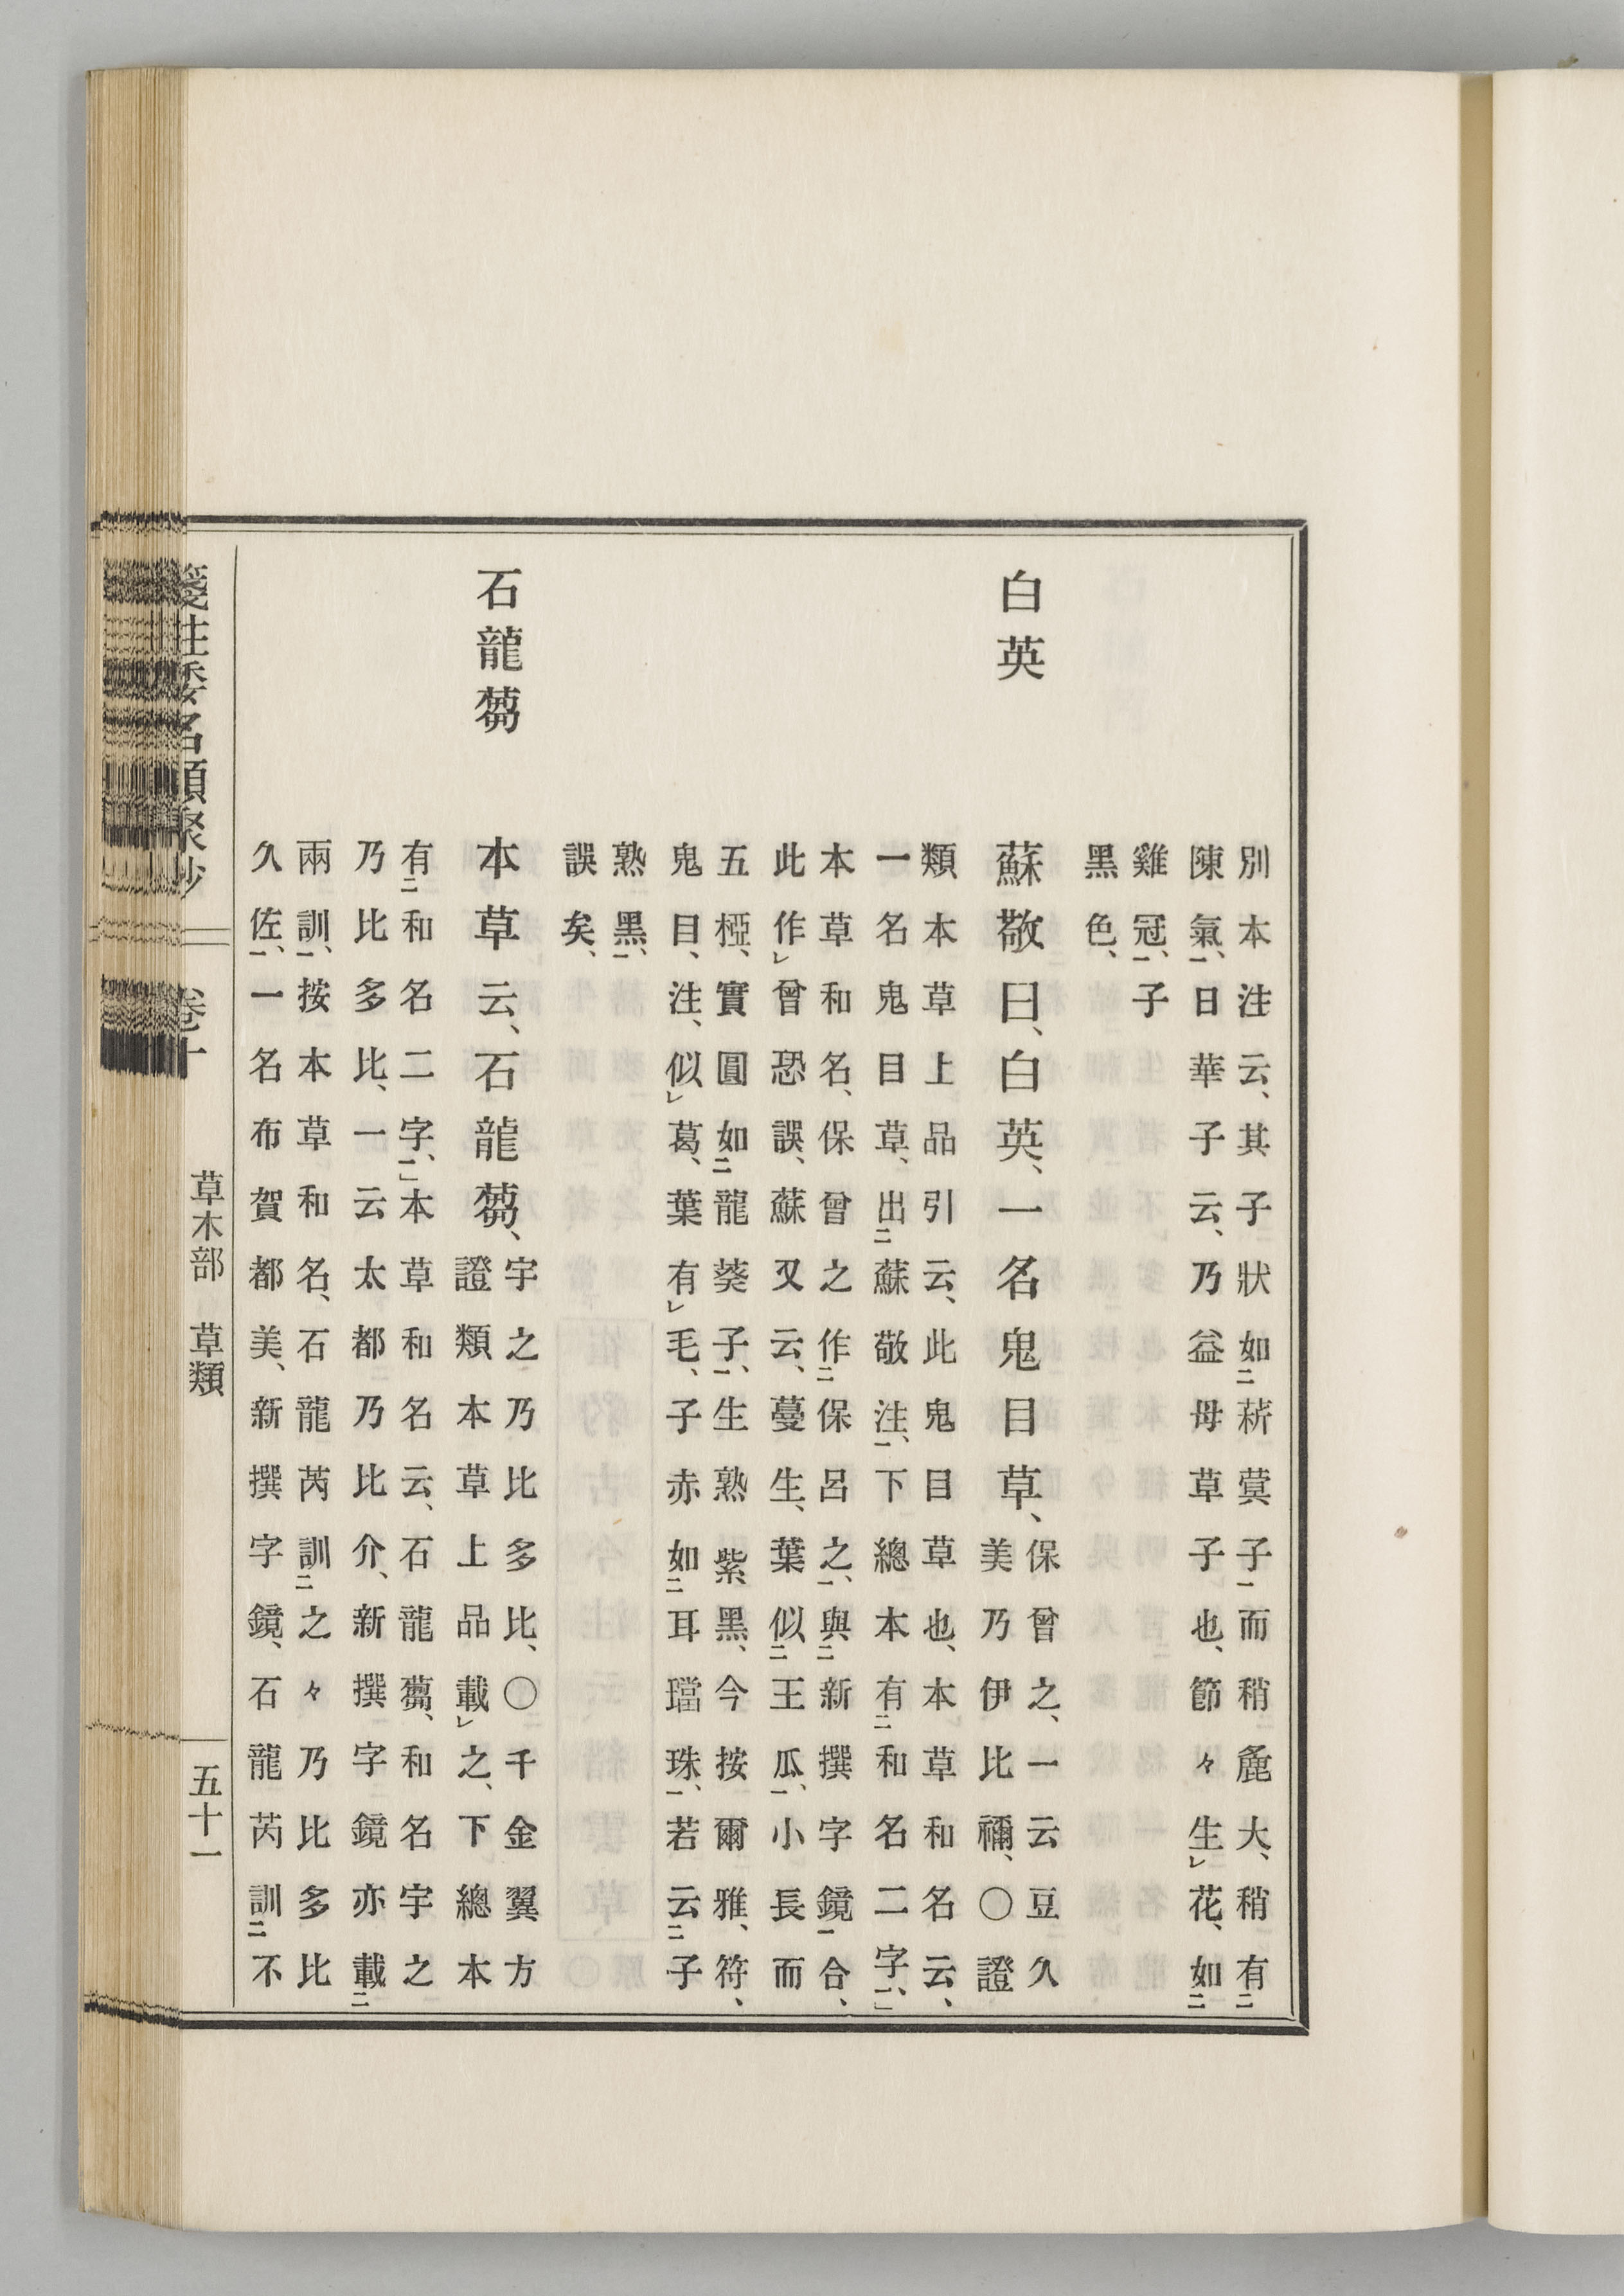 別本注云、其子狀如㆓菥蓂子㆒而稍麁大、稍有㆓
陳氣㆒、日華子云、乃益母草子也、節々生㆑花、如㆓
雞冠㆒、子
黑色、
白英
蘇敬曰、白英、一名鬼目草、
保曾之、一云豆久
美乃伊比禰、○證
類本草上品引云、此鬼目草也、本草和名云、
一名鬼目草、出㆓蘇敬注㆒、下總本有㆓和名二字㆒、」
本草和名、保曾之作㆓保呂之㆒、與㆓新撰字鏡㆒合、
此作㆑曾恐誤、蘇又云、蔓生、葉似㆓王瓜㆒、小長而
五椏、實圓如㆓龍葵子㆒、生熟紫黑、今按爾雅、符、
鬼目、注、似㆑葛、葉有㆑毛、子赤如㆓耳璫珠㆒、若云㆓子
熟黑㆒、
誤矣、
石龍蒭
本草云、石龍蒭、
宇之乃比多比、○千金翼方
證類本草上品載㆑之、下總本
有㆓和名二字㆒、」本草和名云、石龍蒭、和名宇之
乃比多比、一云太都乃比介、新撰字鏡亦載㆓
兩訓㆒、按本草和名、石龍芮訓㆓之々乃比多比
久佐㆒、一名布賀都美、新撰字鏡、石龍芮訓㆓不
箋注倭名類聚抄
卷十
草木部 草類
五十一